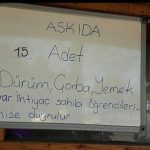 ASKIDA
15 Adet
Dürüm, Çorba, Yemek
var. İhtiyaç sahibi öğrencileri-
mize duyrulur